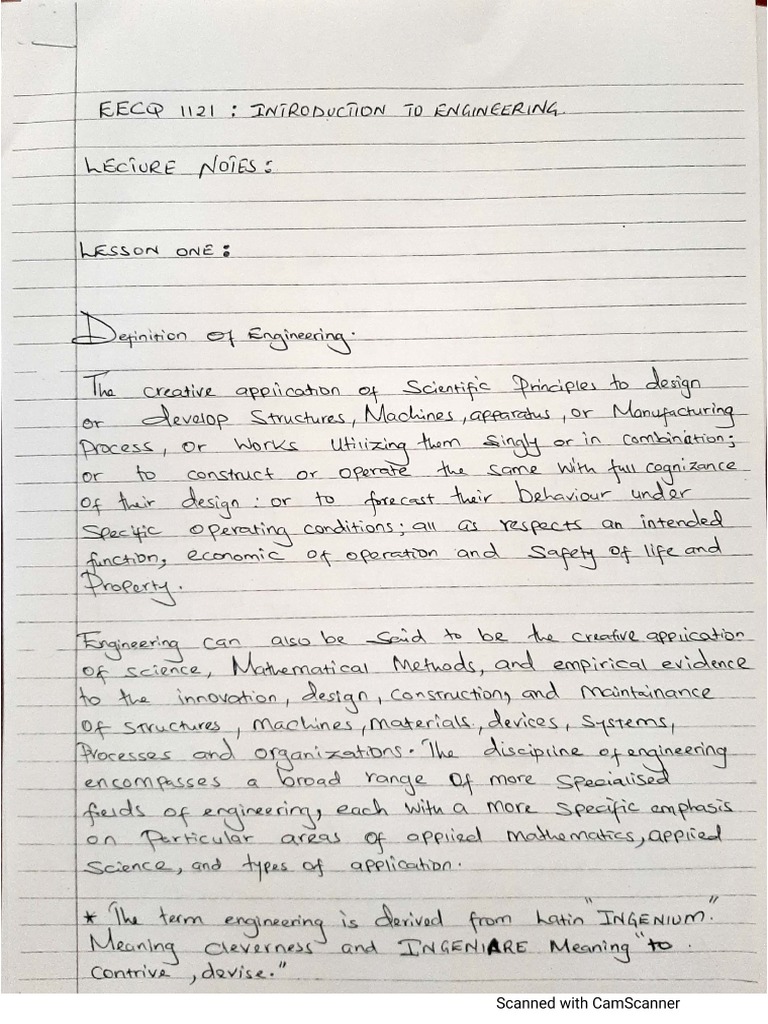 EECQ 1121 : INTRODUCTION TO ENGINEERING.
LECTURE NOTES:
LESSON ONE:
Definition of Engineering.
The creative application of Scientific Principles to design
or develop Structures, Machines, apparatus, or Manufacturing
Process, or works utilizing them singly or in combination;
or to construct or operate the same with full cognizance
of their design: or to forecast their behaviour under
Specific operating conditions; all as respects an intended
function, economic of operation and Safety of life and
Property.
Engineering can also be said to be the creative application
of science, Mathematical Methods, and empirical evidence
to the innovation, design, construction, and maintainance
of structures, machines, materials, devices, systems,
Processes and organizations. The discipline of engineering
encompasses a broad range of more specialised
fields of engineering, each with a more specific emphasis
on Particular areas of applied mathematics, applied
Science, and types of application.
* The term engineering is derived from Latin "INGENIUM."
Meaning cleverness and INGENIARE Meaning "to
contrive, devise."
Scanned with CamScanner